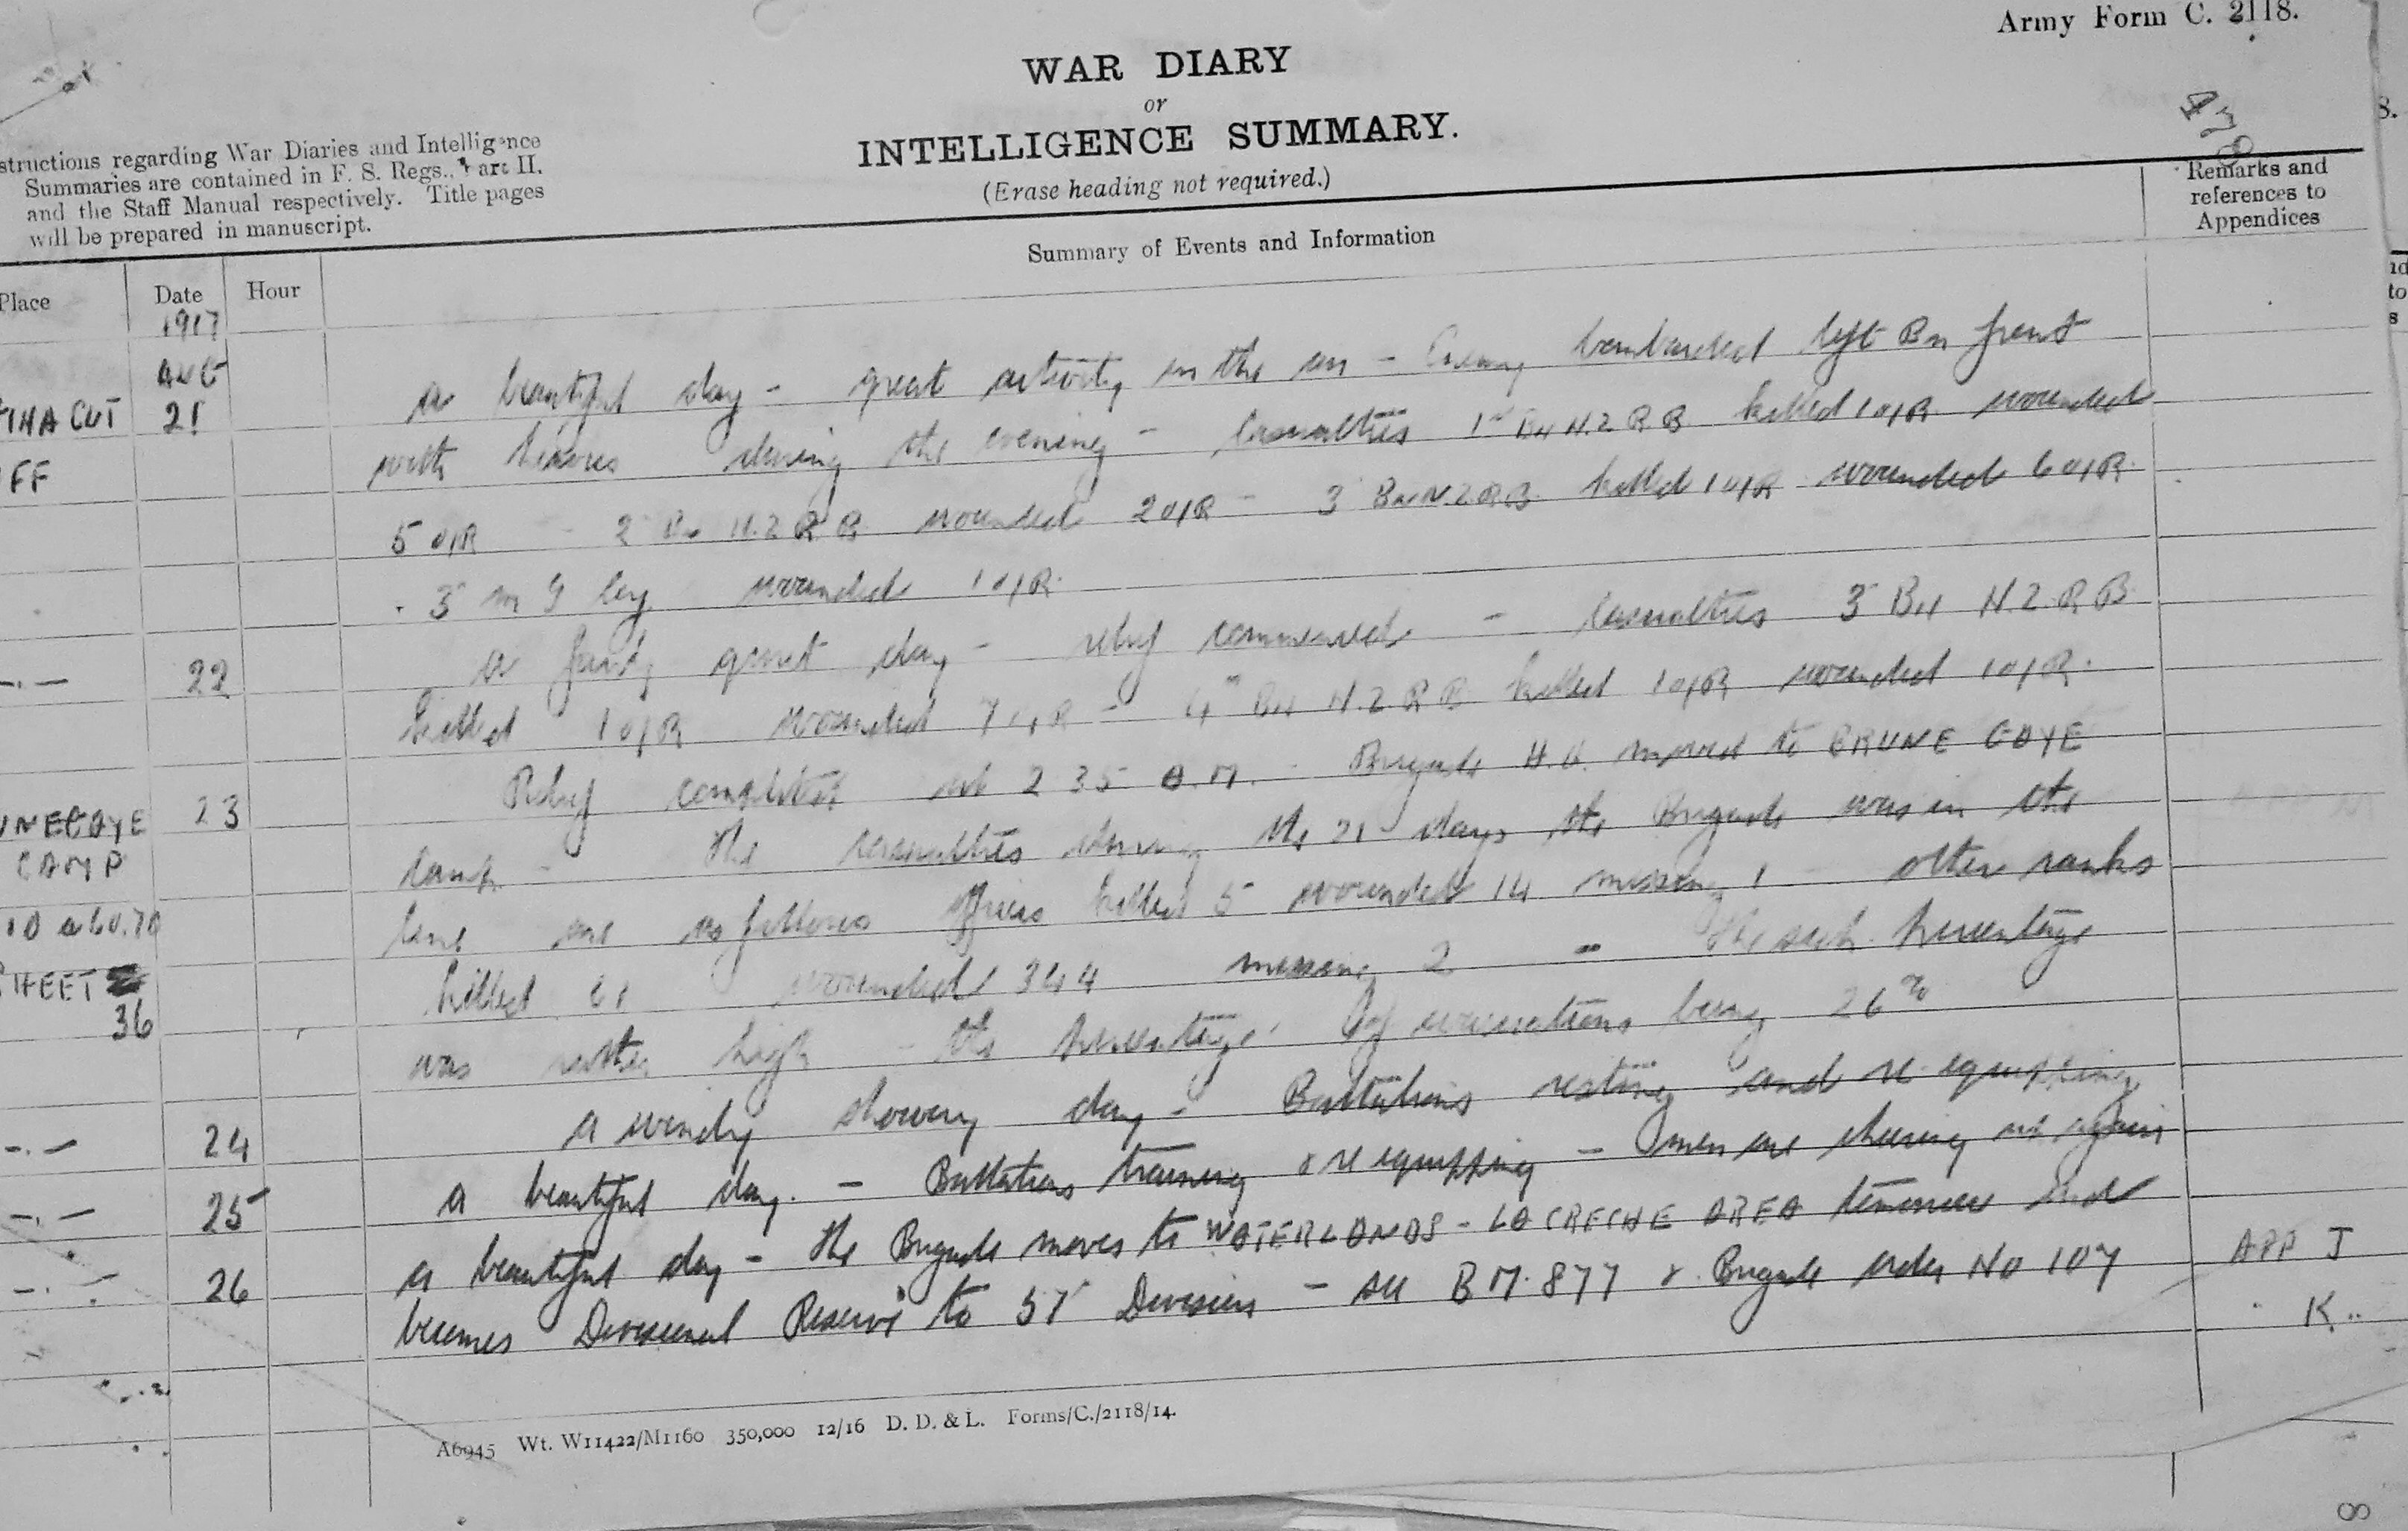 Army Form C. 2118.
WAR DIARY
or
INTELLIGENCE SUMMARY.
(Erase heading not required.)
structions regarding War Diaries and Intelligence
Summaries are contained in F. S. Regs., Part II.
and the Staff Manual respectively. Title pages
will be prepared in manuscript.
Place Date Hour Summary of Events and Information
Remarks and
references to
Appendices
1917
AUG
CUT 21 a beautiful day - great activity in the air - Enemy bombarded left Bn front
FF with during the evening - Casualties 1st Bn N.Z.R.B killed 1 O/R wounded
5 O/R - 2 Bn N.Z.R.B. wounded 2 O/R - 3 Bn N.Z.R.B. killed 1 O/R wounded 6 O/R.
3 M G Coy wounded 1 O/R.
-.- 22 a fairly quiet day - relief commenced - Casualties 3 Bn N.Z.R.B
killed 1 O/R wounded 7 O/R - 4th Bn N.Z.R.B killed 1 O/R wounded 1 O/R.
UNEGAYE 23 Relief completed at 2 35 A.M. - Brigade H.Q. moved to BRUNE GAYE
CAMP Camp - The casualties during the 21 days the Brigade was in the
10 a 60.70 line are as follows Officers killed 5 wounded 14 missing 1 - other ranks
SHEET killed 61 wounded 344 missing 2 - The sick percentage
36 was rather high - the percentage of evacuations being 26%
-.- 24 a windy showery day - Battalions resting and re-equipping
-.- 25 a beautiful day. - Battalions training & re equipping - men are cheering up again
-.- 26 a beautiful day - the Brigade moves to WATERLANDS - LA CRECHE AREA tomorrow and APP J
becomes Divisional Reserve to 57 Division - see B M. 877 & Brigade order No 107 " K..
A6945 Wt. W11422/M1160 350,000 12/16 D. D. & L. Forms/C./2118/14.
8